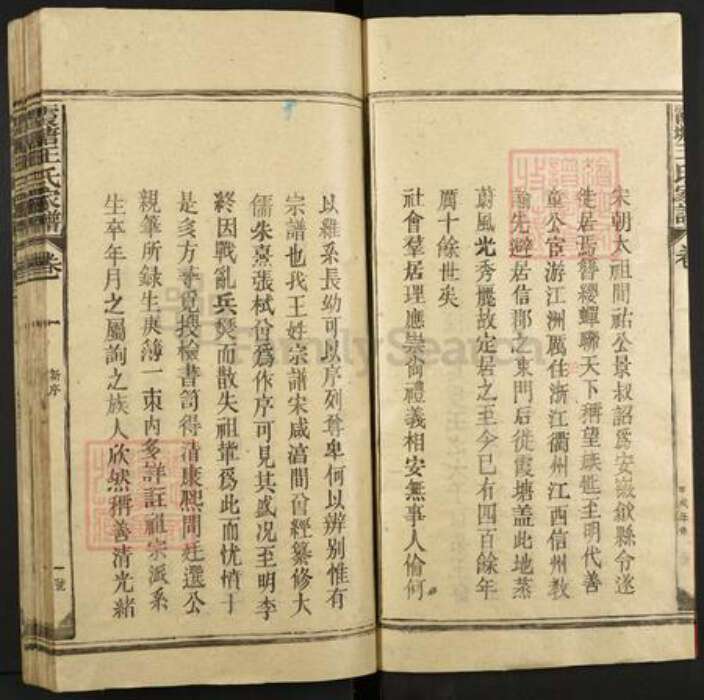 宋朝太祖間祐公景叔詔爲安徽歙縣令遂
徙居焉簪纓蟬聯天下稱望族世至明代善
童公宦游江洲厲住浙江衢州江西信州教
諭先避居信郡之東門后徙霞塘盖此地蒸
蔚風光秀麗故定居之至今已有四百餘年
厲十餘世矣
社會羣居理應崇尚禮義相安無事人倫何
以維系長幼可以序列尊卑何以辨别惟有
宗譜也我王姓宗譜宋咸淳間曾經纂修大
儒朱熹張栻曾爲作序可見其盛况至明季
終因戰亂兵燹而散失祖輩爲此而忧憤十
是多方尋覓搜檢書笥得清康熙間廷選公
親筆所録生庚簿一束内多詳註祖宗派系
生卒年月之屬詢之族人欣然稱善清光緒
霞塘王氏家譜
卷一
一
新序
一號
FamilySearch